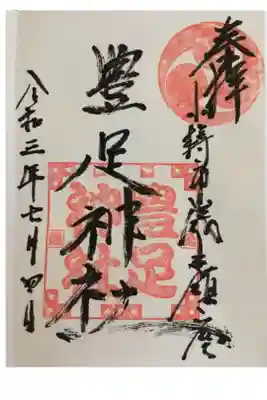 奉拝
豊足神社
豊足
神社
令和三年七月四日